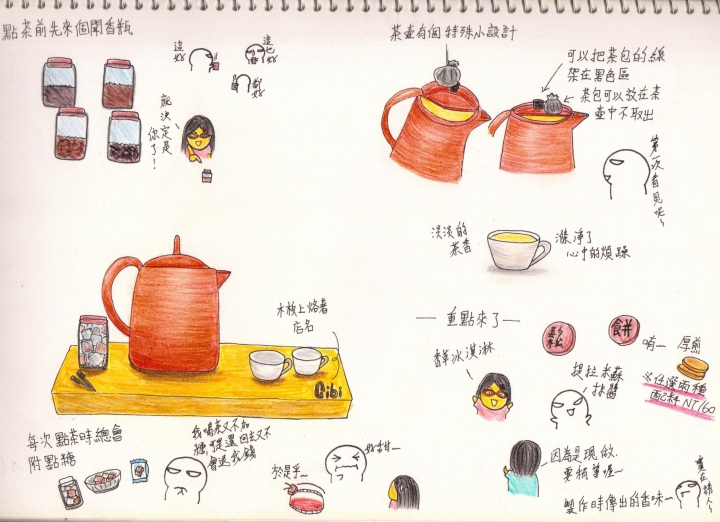 點茶前先來個聞香瓶
這好
這也好
都好
就決定是
你了!
茶壺有個特殊小設計
可以把茶包的線
架在黑色區
茶包可以放在茶
壺中不取出
第一次看見呢~
淡淡的
茶香
滌淨了
心中的煩躁
木板上烙著
店名
Qibi
每次點茶時總會
附點糖
我喝茶又不加
糖,
又不
會退我錢
於是乎~
好甜~
重點來了
鬆
餅
唷~ 厚煎
鮮冰淇淋
提拉米蘇
抹醬
※任選兩種
配料 NT/60
因為是現做
要稍等喔~
製作時傳出的香味~
實在誘人~